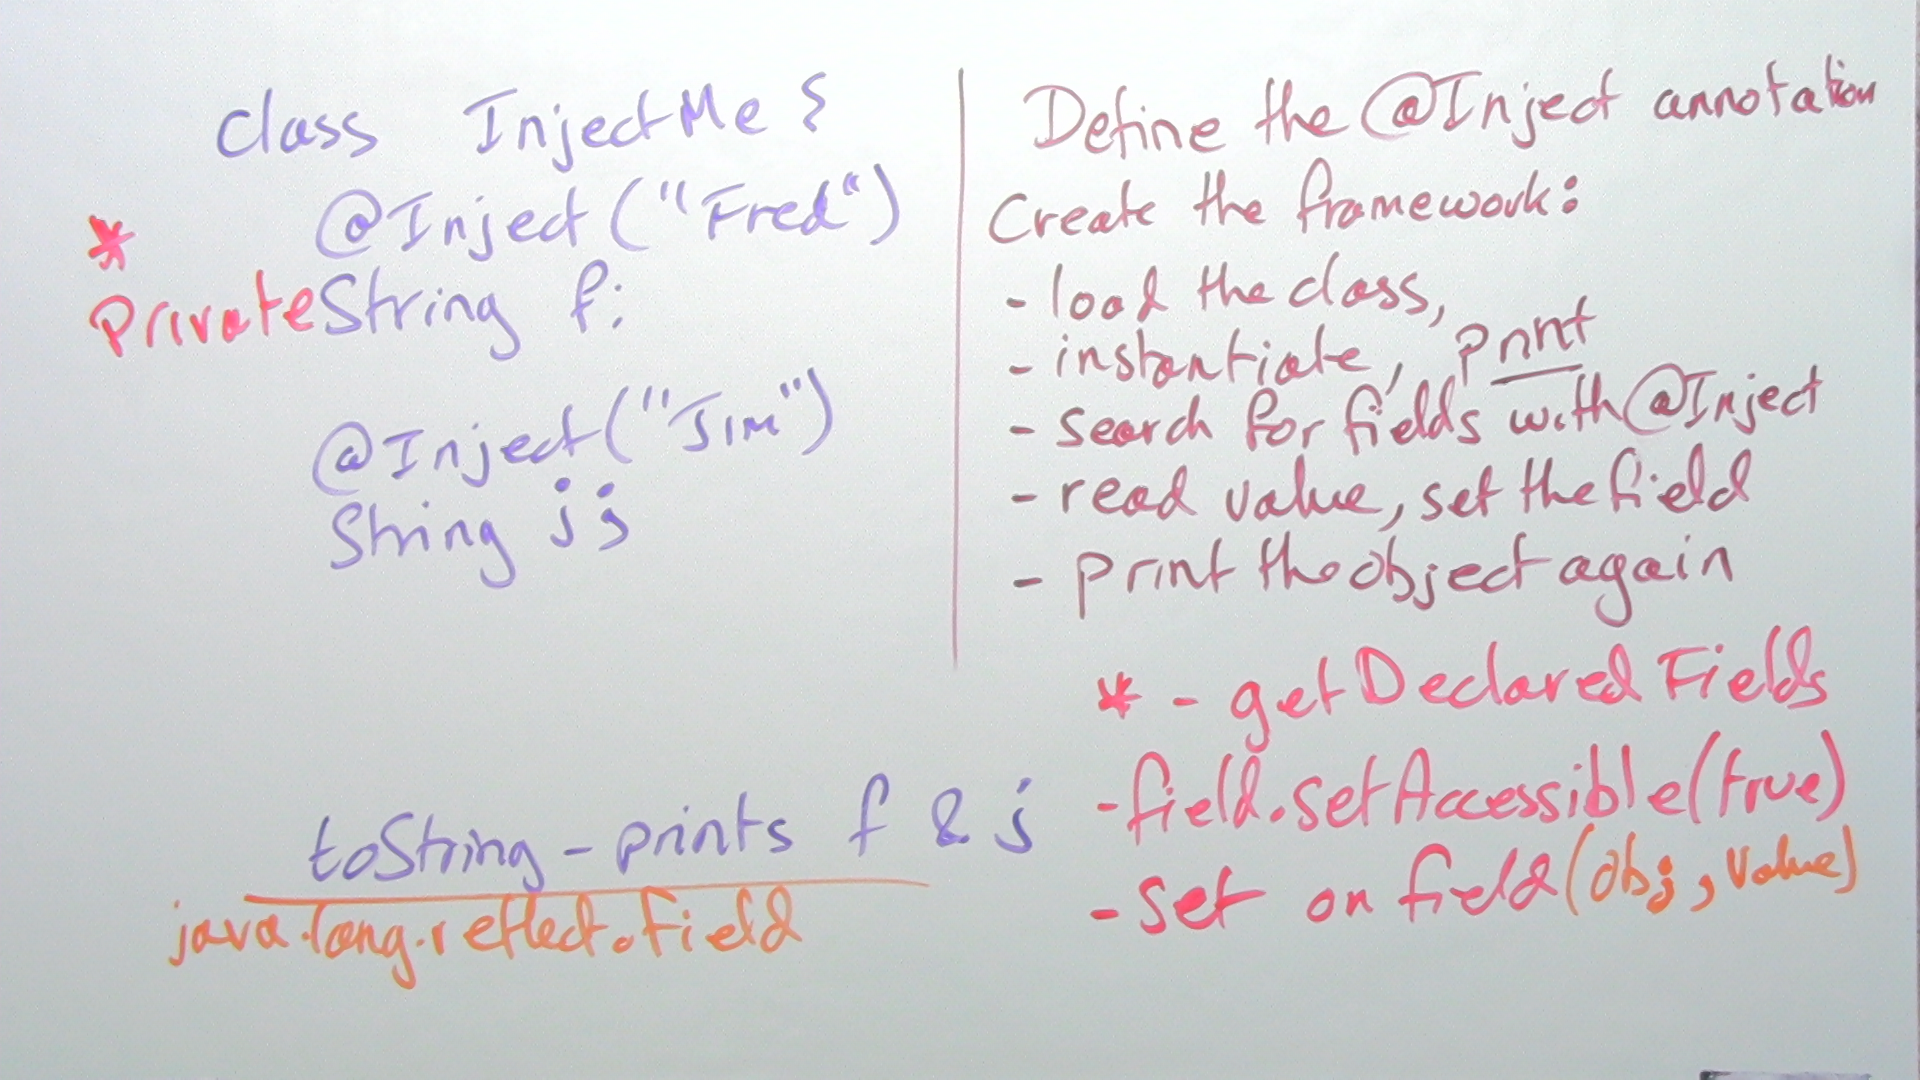 class InjectMe {
@Inject ("Fred")
*
Private String f;
@Inject ("Jim")
String j;
toString - prints f & j
java.lang.reflect.Field
Define the @Inject annotation
Create the framework:
- load the class,
- instantiate, print
- search for fields with @Inject
- read value, set the field
- print the object again
* - getDeclaredFields
- field.setAccessible(true)
- set on field (obj, value)